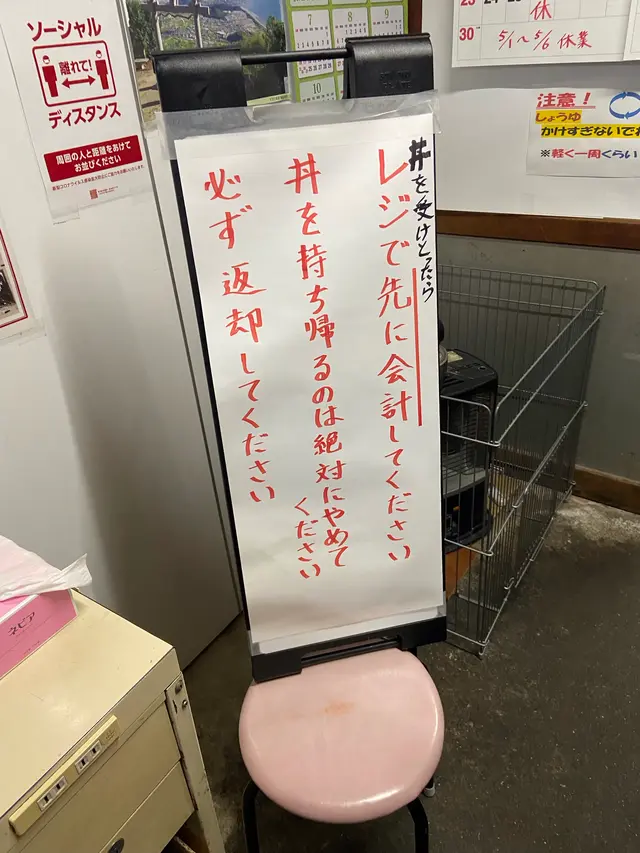 ソーシャル
離れて!
ディスタンス
周囲の人と距離をあけて
お並びください
7
8
9
10
休
30
5/1〜5/6 休業
注意!
しょうゆ
かけすぎないでね
※軽く一周くらい
丼を受けとったら
レジで先に会計してください
丼を持ち帰るのは絶対にやめて
ください
必ず返却してください
ネピア